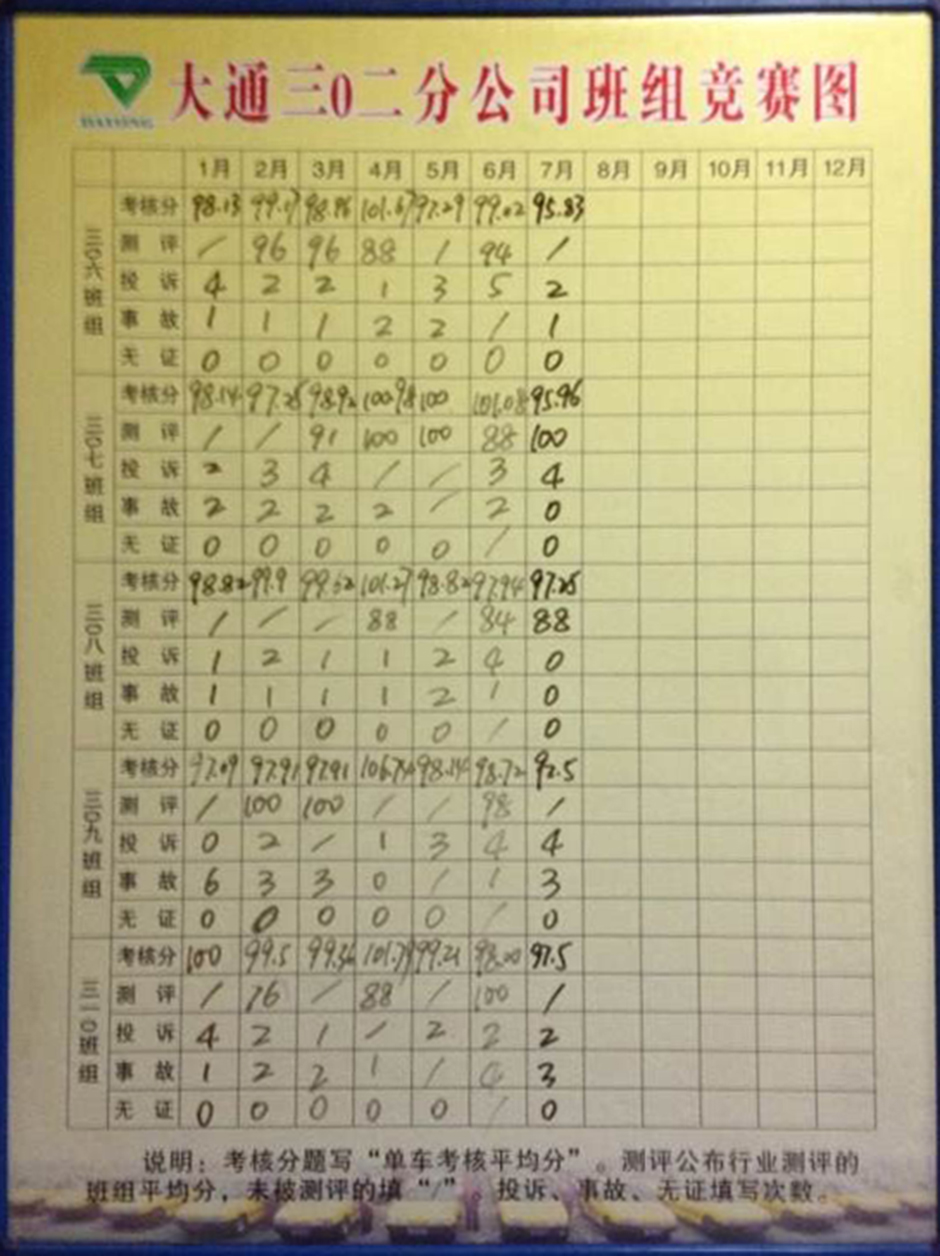 大通三0二分公司班组竞赛图
1月 2月 3月 4月 5月 6月 7月 8月 9月 10月 11月 12月
三0六班组
考核分 98.13 99.17 98.96 101.67 97.29 99.02 95.83
测评 / 96 96 88 / 94 /
投诉 4 2 2 1 3 5 2
事故 1 1 1 2 2 / 1
无证 0 0 0 0 0 0 0
三0七班组
考核分 98.14 97.25 98.92 100.98 100 101.08 95.96
测评 / / 91 100 100 88 100
投诉 2 3 4 / / 3 4
事故 2 2 2 2 / 2 0
无证 0 0 0 0 0 / 0
三0八班组
考核分 98.82 99.9 99.62 101.27 98.82 97.94 97.25
测评 / / / 88 / 84 88
投诉 1 2 1 1 2 4 0
事故 1 1 1 1 2 1 0
无证 0 0 0 0 0 / 0
三0九班组
考核分 97.09 97.91 97.91 98.14 98.72 92.5
测评 / 100 100 / / 98 /
投诉 0 2 / 1 3 4 4
事故 6 3 3 0 / 1 3
无证 0 0 0 0 0 / 0
三一0班组
考核分 100 99.5 99.36 101.79 99.21 98.00 97.5
测评 / 76 / 88 / 100 /
投诉 4 2 1 / 2 2 2
事故 1 2 2 1 / 4 3
无证 0 0 0 0 0 / 0
说明：考核分题写“单车考核平均分”。测评公布行业测评的
班组平均分，未被测评的填“/”。投诉、事故、无证填写次数。